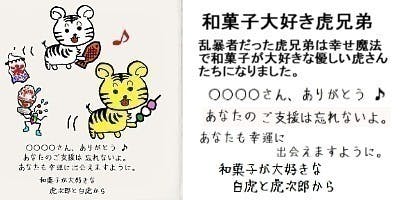 〇〇〇〇さん、ありがとう♪
あなたのご支援は忘れないよ。
あなたも幸運に出会えますように。
和菓子が大好きな
虎次郎と白虎から
和菓子大好き虎兄弟
乱暴者だった虎兄弟は幸せ魔法
で和菓子が大好きな優しい虎さん
たちになりました。
〇〇〇〇さん、ありがとう♪
あなたのご支援は忘れないよ。
あなたも幸運に
出会えますように。
和菓子が大好きな
白虎と虎次郎から